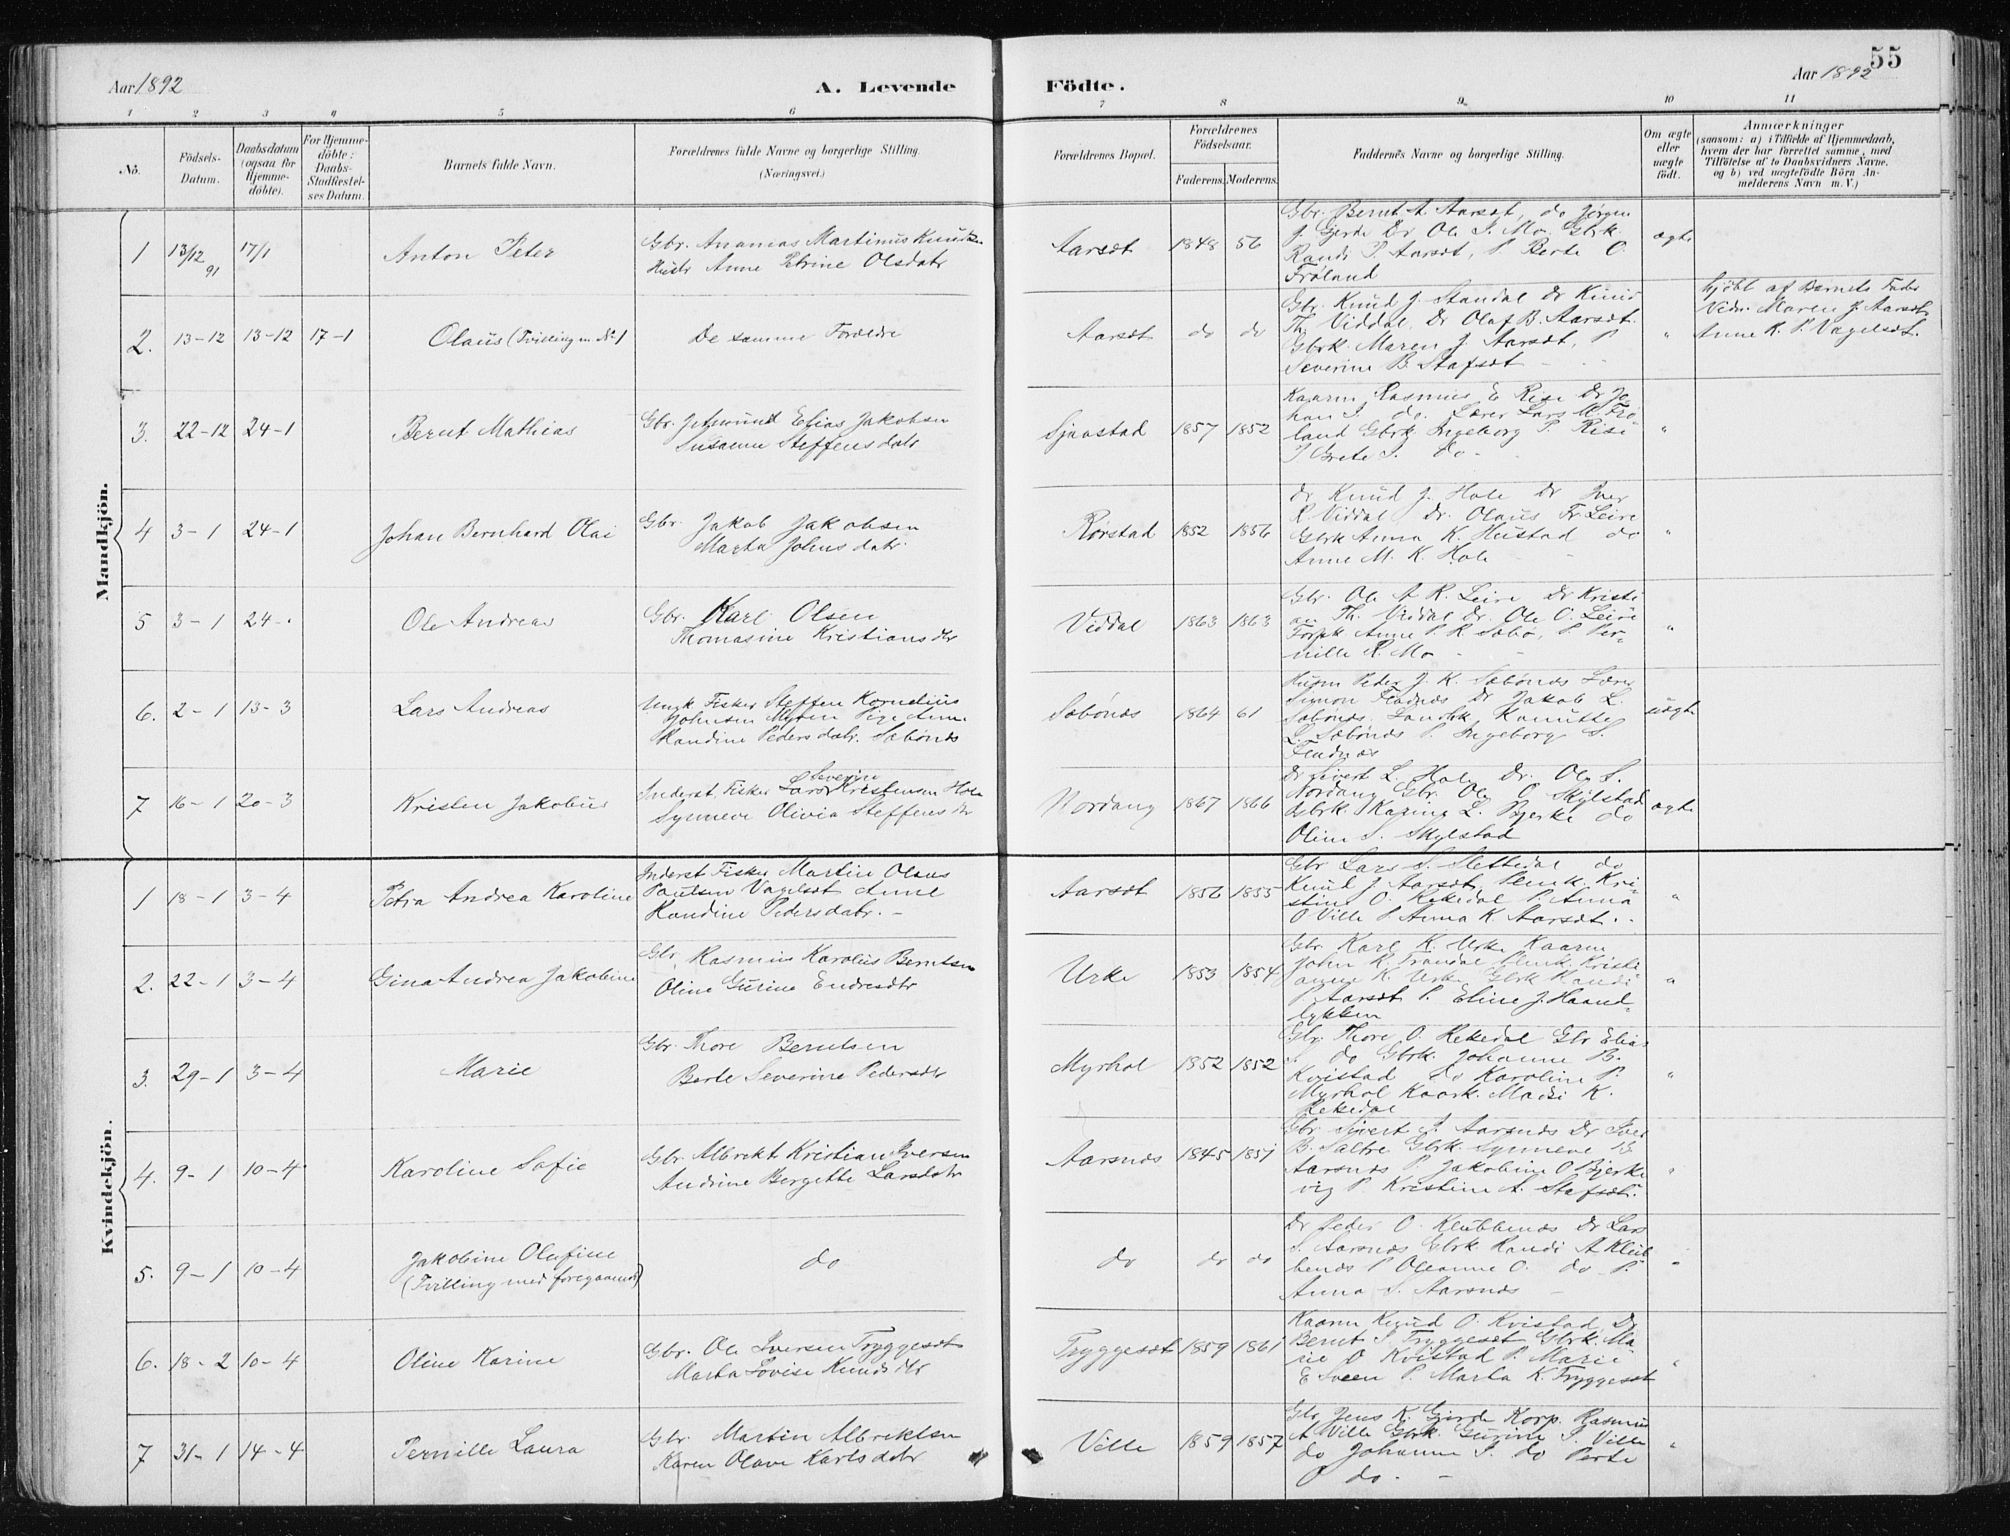 55
Aar 1892
A. Levende
Födte.
Aar 1892
1 2 3 4 5 6 7 8 9 10 11
No.
Födsels-Datum.
Daabsdatum (ogsaa for Hjemme-döbte).
For Hjemme-döbte: Daabs-Stadfæstel-ses Datum.
Barnets fulde Navn.
Forældrenes fulde Navne og borgerlige Stilling.
(Næringsvei.)
Forældrenes Bopæl.
Forældrenes Födselsaar.
Faderens. Moderens.
Faddernes Navne og borgerlige Stilling.
Om ægte eller uægte födt.
Anmærkninger
(saasom: a) i Tilfælde af Hjemmedaab, hvem der har forrettet samme, med Tilföielse af to Daabsvidners Navne, og b) ved uægtefödte Börn An-melderens Navn m. V.)
Mandkjön.
1 13/12 91 17/1 Anton Peter
Gbr. Ananias Martinus Knudsen
Hustr Anne Petrine Olsdatr
Aarsæt 1848 56
Gbr. Bernt A. Aarsæt, do Jørgen
J. Gjerde Dr Ole I. Mo. Gbrk.
Randi P. Aarsæt, P. Berte O.
Frøland
ægte
2. 13-12 13-12 17-1 Olaus (Tvilling m. No 1)
De samme Forældre
Aarsæt do do
Gbr. Knud J. Standal Dr Knud
Th. Viddal. Dr Olaf B. Aarsæt.
Gbrk. Maren J. Aarsæt, P.
Severine B. Stafsæt
"
hjdbt af Barnets Fader
Vidr. Maren J. Aarsæt
Anne K. P. Vagelsæt.
3. 22-12 24-1 Bernt Mathias
Gbr. Jetmund Elias Jakobsen
Susanne Steffensdatr
Sjaastad 1857 1852
Kaarm Rasmus E Rise Dr Jo-
han I. do. Lærer Lars M. Frø
land Gbrk Ingeborg P. Rise
P Grete I. do
"
4 3-1 24-1 Johan Bernhard Olai
Gbr. Jakob Jakobsen
Marta Johnsdatr.
Rørstad 1852 1856
Dr. Knud J. Hole Dr Iver
R. Viddal Dr. Olaus Fr. Leire
Gbrk Anna K. Hustad do
Anne M. K. Hole
"
5 3-1 24- Ole Andreas
Gbr. Karl Olsen
Thomasine Kristiansdtr
Viddal 1863 1863
Gbr. Ole A. R. Leire Dr Kristi
an Th. Viddal Dr. Ole O. Leire
Forpk Anne P. R. Sæbø, P. Per-
nille R. Mo
"
6. 2-1 13-3 Lars Andreas
Ungk Fisker Steffen Kornelius
Johnsen Myren Pige Anne
Randine Pedersdatr. Sæbønes
Sæbønes 1864 61
Husm Peder J. K. Sæbønes Lærer
Simon Fladnæs Dr Jakob L.
Sæbønes. Landhk Kanutte
L. Sæbønes P. Ingeborg S.
Fladnæs
uægte
7 16-1 20-3 Kristen Jakobus
Severin
Inderst Fisker Lars Kristensen Hole
Synneve Olivia Steffensdtr
Nordang 1867 1866
Dr Sivert L. Hole Dr. Ole S.
Nordang Gbr. Ole O Skylstad
Gbrk. Karine L. Bjerke do
Oline S. Skylstad
ægte
Kvindekjön.
1 18-1 3-4 Petra Andrea Karoline
Inderst Fisker Martin Olaus
Paulsen Vagelsæt Anne
Randine Pedersdatr.
Aarsæt 1856 1855
Gbr Lars S. Slettedal do
Knud J. Aarsæt, Penk. Kri-
stine O. Rekedal P. Anna
O Ville P. Anna K. Aarsæt.
"
2. 22-1 3-4 Gina Andrea Jakobine
Gbr. Rasmus Karolus Berntsen
Oline Gurine Endresdtr
Urke 1853 1854
Gbr Karl K. Urke Kaarm
John R. Trandal Penk. Kristi
anne K. Urke Gbrk Randi
P. Aarsæt P. Eline J. Haand-
lykken
"
3. 29-1 3-4 Marie
Gbr. Thore Berntsen
Berte Severine Pedersdtr
Myrhol 1852 1852
Gbr. Thore O. Rekedal Gbr Elias
S. do Gbrk. Johanne B.
Kvistad do Karoline P.
Myrhol Kaark. Marki K.
Rekedal
"
4. 9-1 10-4 Karoline Sofie
Gbr. Albrekt Kristian Iversen
Andrine Bergette Larsdatr
Aarsnes 1845 1851
Gbr Sivert I. Aarsnes Dr Iver
B. Sætre Gbrk. Synneve E
Aarsnes P. Jakobine O Bjerke
vig P. Kristine A. Stafsæt.
"
5. 9-1 10-4 Jakobine Olufine
(Tvilling med foregaaende)
do
do do do
Dr Peder O. Klubbenes Dr Lars
S. Aarsnes Gbrk. Randi A Klub
benes P Oleanne O. do P.
Anna S. Aarsnes
"
6. 18-2 10-4 Oline Karine
Gbr. Ole Iversen Tryggesæt
Marta Lovise Knudsdtr
Tryggesæt 1859 1861
Kaarm Knud O. Kvistad Dr
Bernt I. Tryggesæt Gbrk. Ma
rie O Kvistad P. Marie
E Sveen P. Marta K. Tryggesæt
"
7 31-1 14-4 Pernille Laura
Gbr. Martin Albrektsen
Karen Olave Karlsdatr
Ville 1859 1857
Gbr Jens K. Gjerde Korp. Rasmus
A Ville Gbrk. Gurine I. Ville
do Johanne I. do Berte
O do.
"